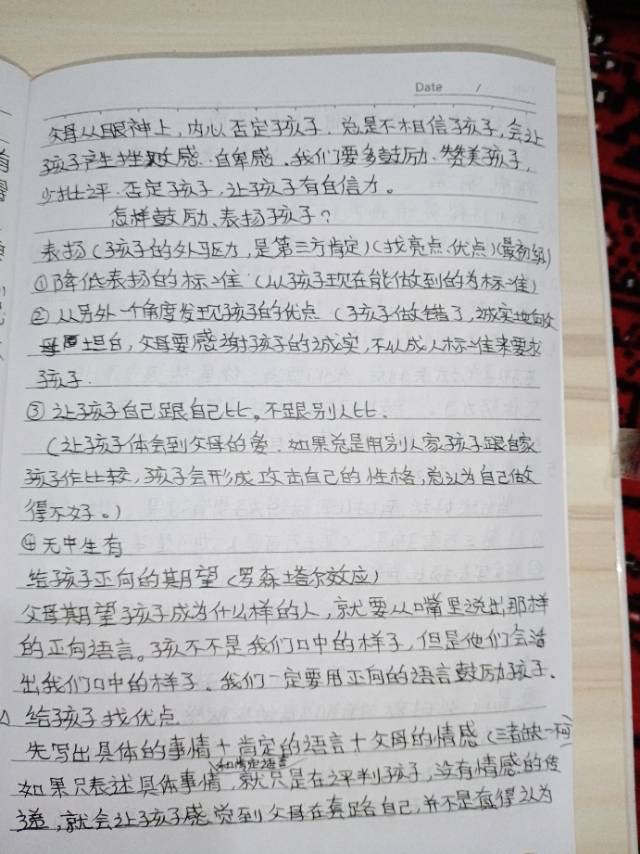 Date /
父母从眼神上,内心否定孩子.总是不相信孩子,会让
孩子产生挫败感.自卑感.我们要多鼓励.赞美孩子,
少批评.否定孩子,让孩子有自信力。
怎样鼓励.表扬孩子?
表扬(孩子的外驱力,是第三方肯定)(找亮点.优点)(最初级)
①降低表扬的标准(以孩子现在能做到的为标准)
②从另外一个角度发现孩子的优点(孩子做错了,诚实地向父
母坦白,父母要感谢孩子的诚实,不以成人标准来要求
孩子.
③让孩子自己跟自己比。不跟别人比.
(让孩子体会到父母的爱.如果总是用别人家孩子跟自家
孩子作比较,孩子会形成攻击自己的性格,总认为自己做
得不好。)
④无中生有
给孩子正向的期望(罗森塔尔效应)
父母期望孩子成为什么样的人,就要从嘴里说出那样
的正向语言。孩不不是我们口中的样子,但是他们会活
出我们口中的样子.我们一定要用正向的语言鼓励孩子.
△给孩子找优点
先写出具体的事情+肯定的语言+父母的情感(三者缺一不可)
如果只表述具体事情和肯定语言,就只是在评判孩子,没有情感的传
递,就会让孩子感觉到父母在套路自己,并不是真得认为